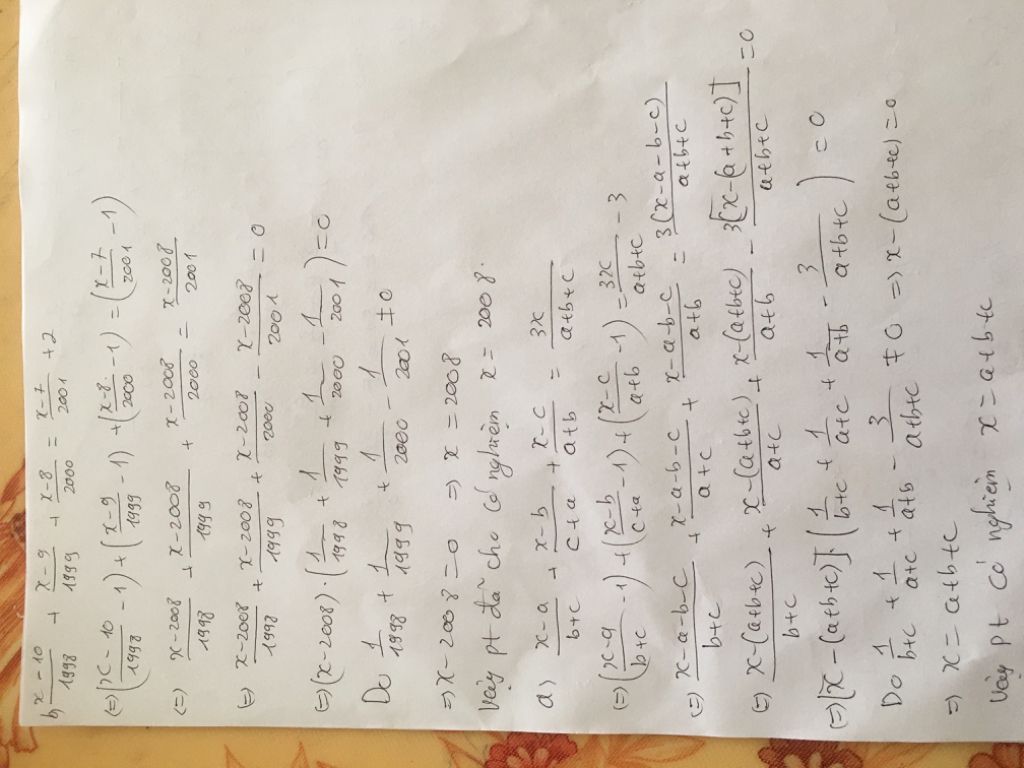 b, x-10/1998 + x-9/1999 + x-8/2000 = x-7/2001 + 2
(=) (x-10/1998 - 1) + (x-9/1999 - 1) + (x-8/2000 - 1) = (x-7/2001 - 1)
(=) x-2008/1998 + x-2008/1999 + x-2008/2000 = x-2008/2001
(=) x-2008/1998 + x-2008/1999 + x-2008/2000 - x-2008/2001 = 0
(=) (x-2008).(1/1998 + 1/1999 + 1/2000 - 1/2001) = 0
Do 1/1998 + 1/1999 + 1/2000 - 1/2001 ≠ 0
=) x-2008 = 0 =) x = 2008
Vậy pt đã cho có nghiệm x = 2008.
a) x-a/b+c + x-b/c+a + x-c/a+b = 3x/a+b+c
(=) (x-a/b+c - 1) + (x-b/c+a - 1) + (x-c/a+b - 1) = 3x/a+b+c - 3
(=) x-a-b-c/b+c + x-a-b-c/a+c + x-a-b-c/a+b = 3(x-a-b-c)/a+b+c
(=) x-(a+b+c)/b+c + x-(a+b+c)/a+c + x-(a+b+c)/a+b - 3[x-(a+b+c)]/a+b+c = 0
(=) [x-(a+b+c)].(1/b+c + 1/a+c + 1/a+b - 3/a+b+c) = 0
Do 1/b+c + 1/a+c + 1/a+b - 3/a+b+c ≠ 0 =) x-(a+b+c) = 0
=) x = a+b+c
Vậy pt có nghiệm x = a+b+c